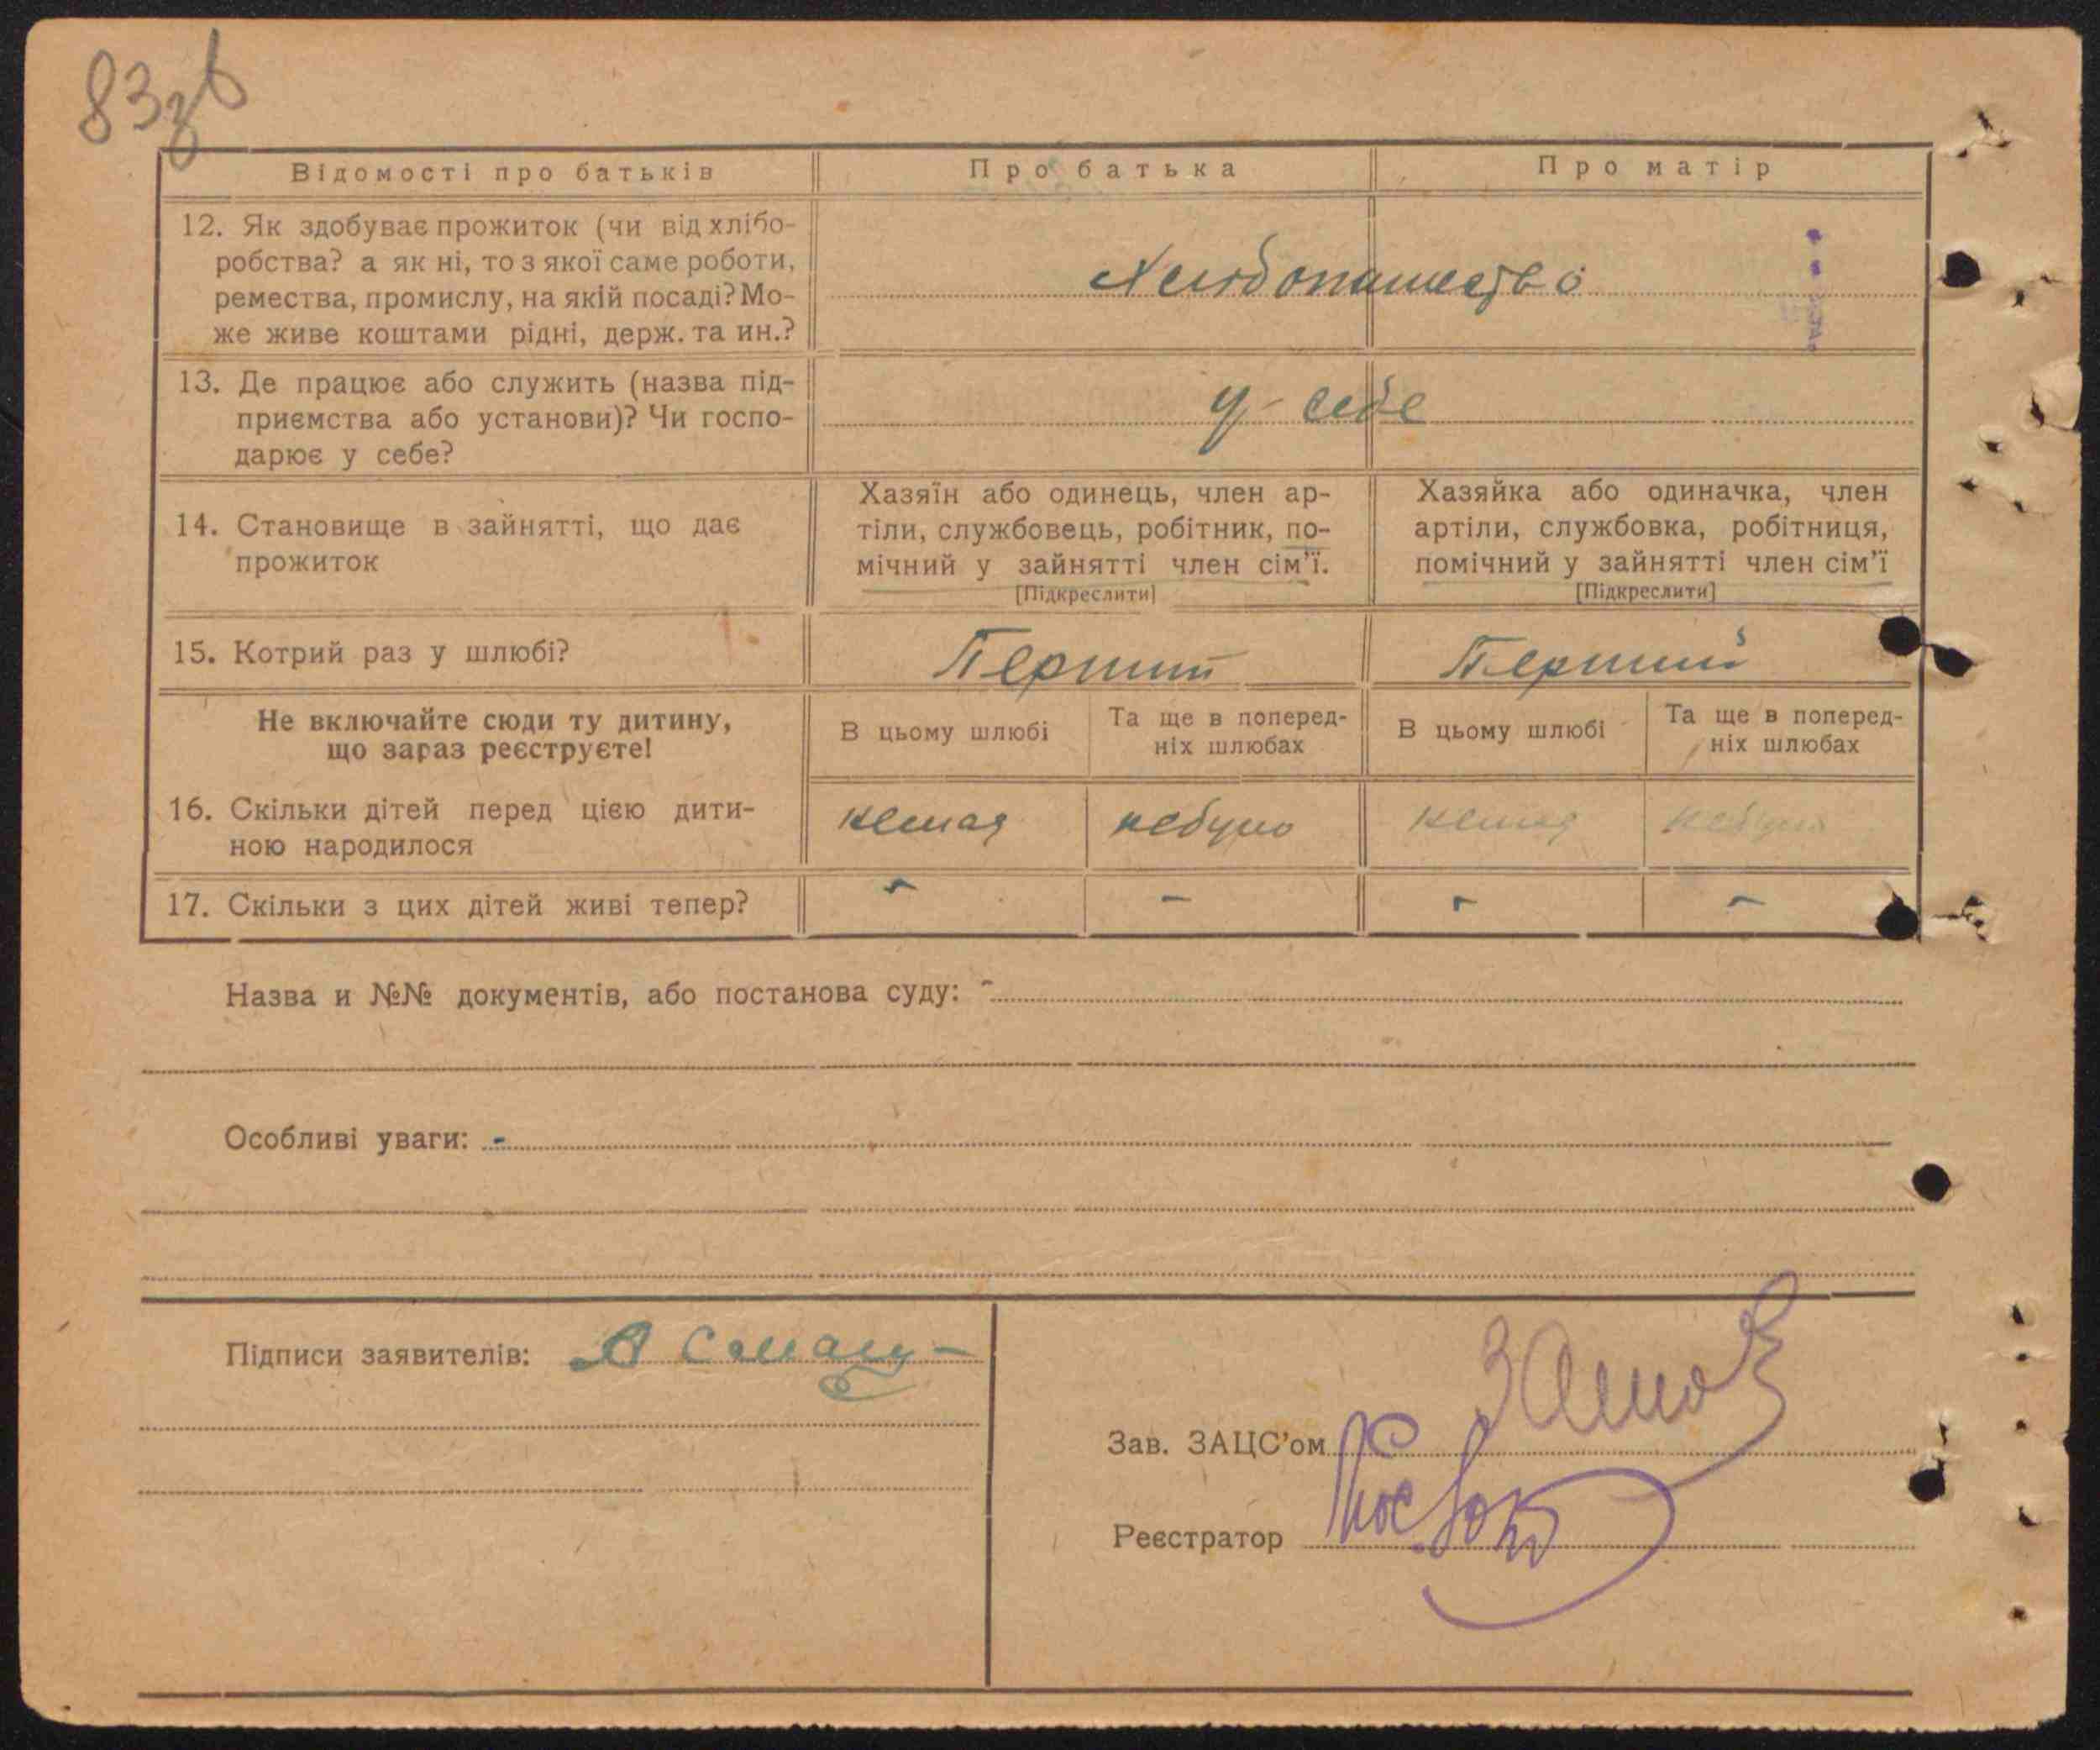 83зв
Відомості про батьків
Про батька
Про матір
12. Як здобуває прожиток (чи від хлібо-
робства? а як ні, то з якої саме роботи,
ремества, промислу, на якій посаді? Мо-
же живе коштами рідні, держ. та ин.?
Хлибопашество
13. Де працює або служить (назва під-
приємства або установи)? Чи госпо-
дарює у себе?
у себе
14. Становище в зайнятті, що дає
прожиток
Хазяїн або одинець, член ар-
тіли, службовець, робітник, по-
мічний у зайнятті член сім'ї.
[Підкреслити]
Хазяйка або одиначка, член
артіли, службовка, робітниця,
помічний у зайнятті член сім'ї
[Підкреслити]
15. Котрий раз у шлюбі?
Перший
Перший
Не включайте сюди ту дитину,
що зараз реєструєте!
В цьому шлюбі
Та ще в поперед-
ніх шлюбах
В цьому шлюбі
Та ще в поперед-
ніх шлюбах
16. Скільки дітей перед цією дити-
ною народилося
немая
небуло
немая
небуло
17. Скільки з цих дітей живі тепер?
- - - -
Назва и №№ документів, або постанова суду: -
Особливі уваги: -
Підписи заявителів:
Зав. ЗАЦС'ом
Реєстратор